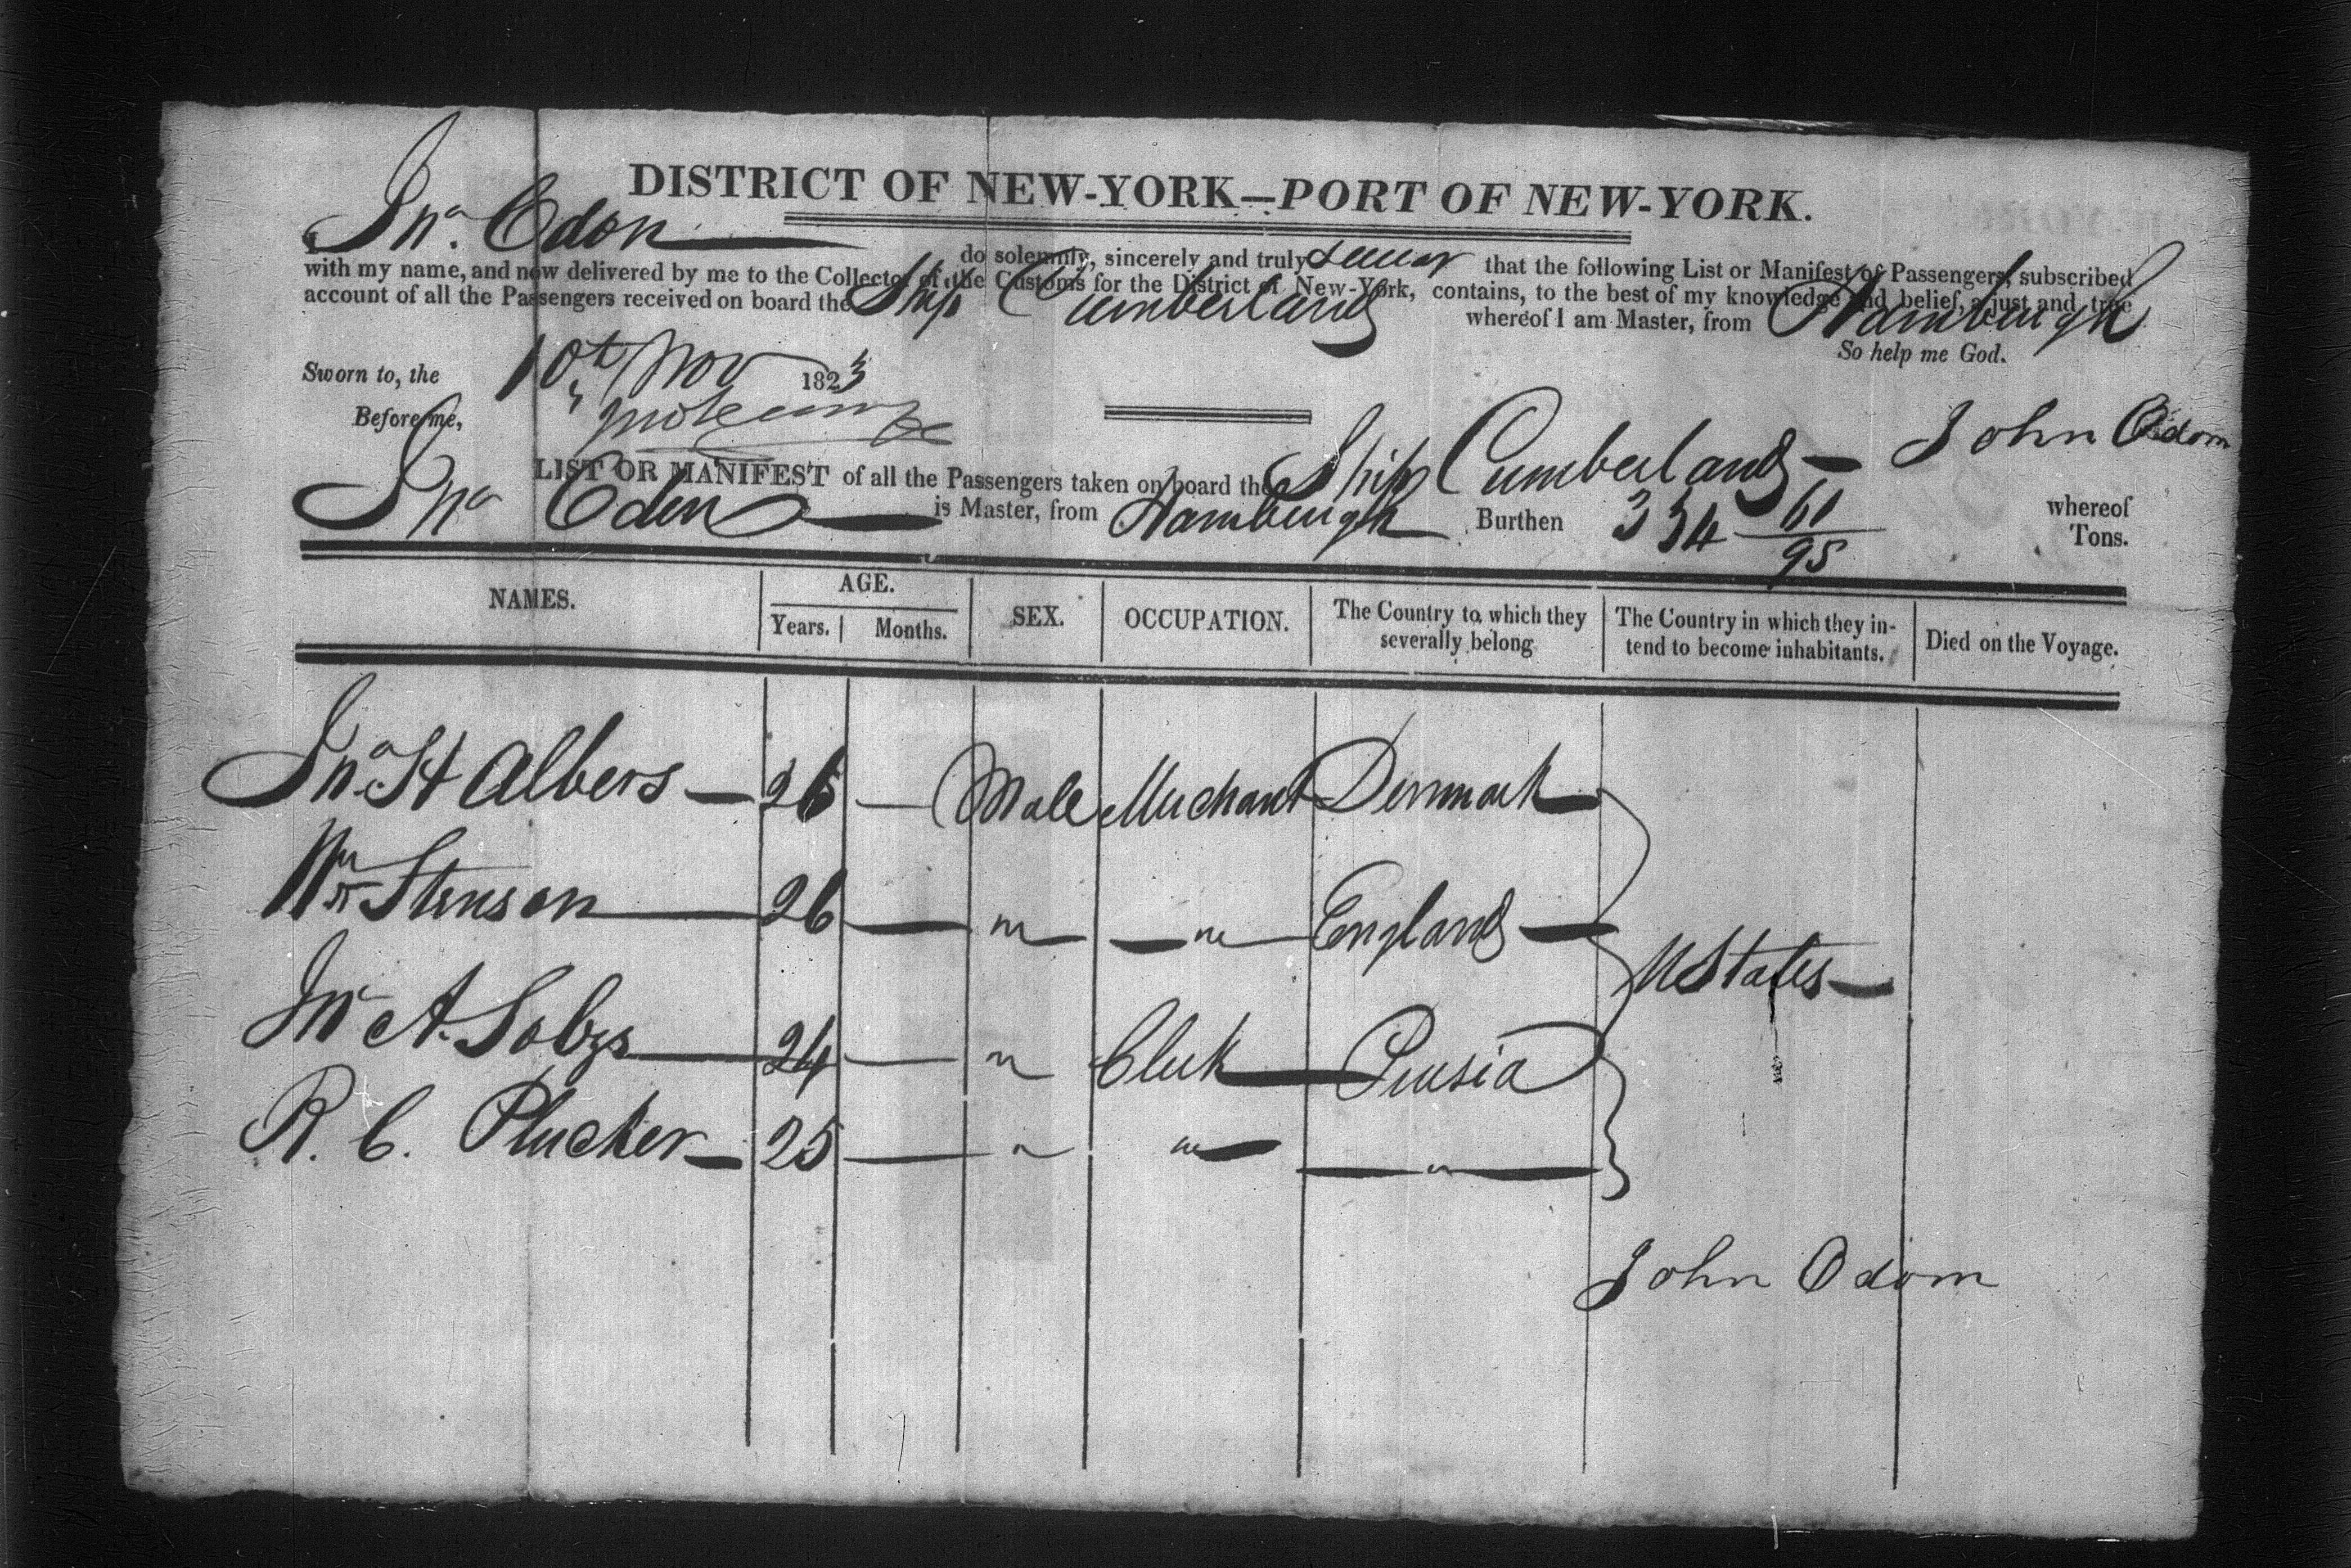 DISTRICT OF NEW-YORK—PORT OF NEW-YORK.
I, Jna. Odon do solemnly, sincerely and truly swear that the following List or Manifest of Passengers, subscribed
with my name, and now delivered by me to the Collector of the Customs for the District of New-York, contains, to the best of my knowledge and belief, a just and true
account of all the Passengers received on board the Ship Cumberland whereof I am Master, from Hamburgh
So help me God.
Sworn to, the 10th Nov 1823
Before me,
John Odom
LIST OR MANIFEST of all the Passengers taken on board the Ship Cumberland — whereof
Jna Oden is Master, from Hamburgh Burthen 334 61/95 Tons.
NAMES. AGE. SEX. OCCUPATION. The Country to which they severally belong The Country in which they intend to become inhabitants. Died on the Voyage.
Years. Months.
Jna. H Albers — 26 — Male Merchant Denmark
Wm Stenson — 26 — " — " — England —
UStates —
Jna A. Solzs — 24 — " Clerk — Prusia
R. C. Plucker — 25 — " " — — " —
John Odom